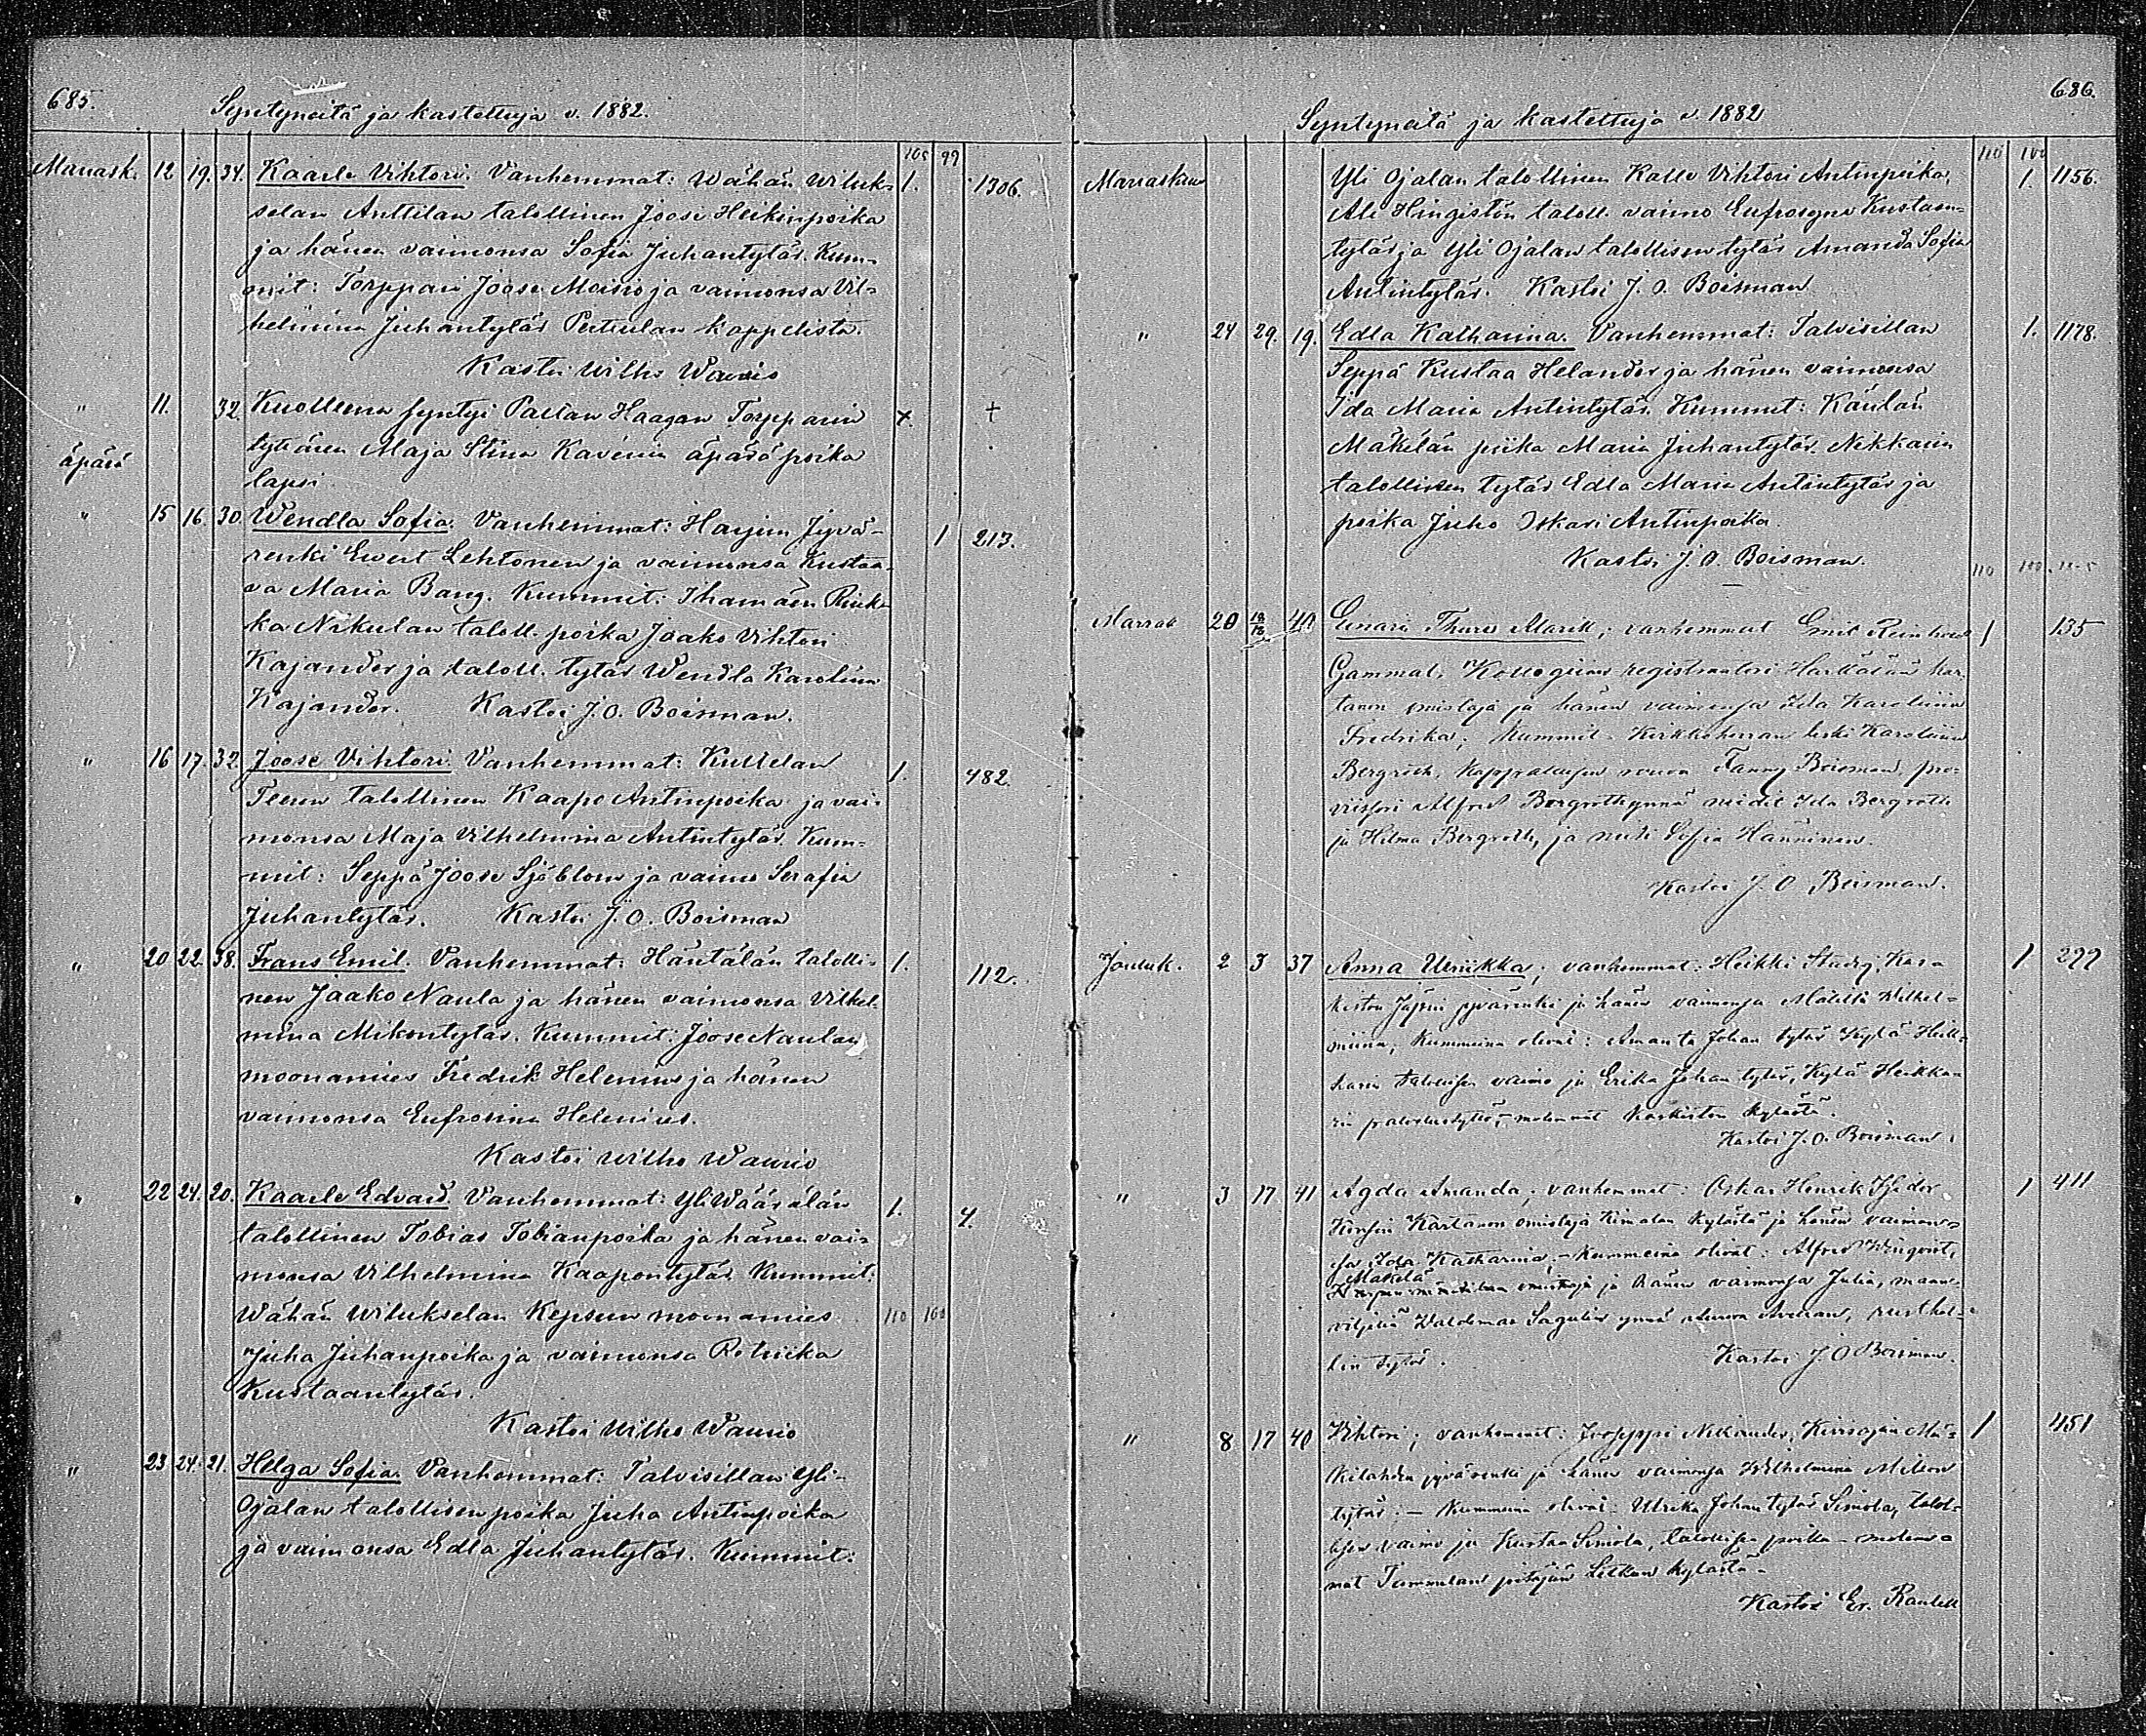 685.
Syntyneitä ja kastettuja v. 1882.
105 99
Marrask. 12 19. 34. Kaarle Vihtori. Vanhemmat: Wähän Wiluk- 1. 1306.
selan Anttilan talollinen Joose Heikinpoika
ja hänen vaimonsa Sofia Juhantytär. Kum-
mit: Torppari Joose Moisio ja vaimonsa Vil-
helmina Juhantytär Pertulan kappelista.
Kastoi Wilho Waurio
" 11. 32 Kuolleena syntyi Paelan Haagan Torpparin x. †
tyttären Maja Stina Kavenin äpäräpoika
äpärä
lapsi.
" 15 16. 30. Wendla Sofia. Vanhemmat: Harjun Jyvä- 1 213.
renki Ewert Lehtonen ja vaimonsa Kustaa-
va Maria Bang. Kummit: Ihamäen
ka Nikulan taloll. poika Jaako Vihtori
Kajander ja taloll. tytär Wendla Karoliina
Kajander. Kastoi J. O. Boisman.
" 16 17. 32. Joose Vihtori. Vanhemmat: Kultelan 1. 482.
talollinen Kaapo Antinpoika ja vai-
monsa Maja Vilhelmina Antintytär. Kum-
mit: Seppä Joose Sjöblom ja vaimo Serafia
Juhantytär. Kastoi J. O. Boisman
" 20 22. 38. Frans Emil. Vanhemmat: Häntälän talolli- 1. 112.
nen Jaako Naula ja hänen vaimonsa Vilhel-
mina Mikontytär. Kummit: Joose Naulan
moonamies Fredrik Helenius ja hänen
vaimonsa Eufrosina Helenius.
Kastoi Wilho Waurio
" 22 24. 20. Kaarle Edvard. Vanhemmat: Yli Wäärälän 1. 4.
talollinen Tobias Tobianpoika ja hänen vai-
monsa Vilhelmina Kaapontytär. Kummit:
Wähän Wilukselan Kepsun moonamies 110 100
Juha Juhanpoika ja vaimonsa
Kustaantytär.
Kastoi Wilho Waurio
" 23 24. 21. Helga Sofia. Vanhemmat: Talvisillan Yli-
Ojalan talollisen poika Juha Antinpoika
ja vaimonsa Edla Juhantytär. Kummit:
686.
Syntyneitä ja kastettuja v. 1882
110 100
Marraskuu Yli Ojalan talollinen Kalle Vihtori Antinpoika, 1. 1156.
Ali Hingistön taloll. vaimo Eufrosyne Kustaan-
tytär ja Yli Ojalan talollisen tytär Amanda Sofia
Antintytär. Kastoi J. O. Boisman
" 24 29. 19. Edla Katharina. Vanhemmat: Talvisillan 1. 1178.
Seppä Kustaa Helander ja hänen vaimonsa
Ida Maria Antintytär. Kummit: Kaulan
Mäkelän piika Maria Juhantytär. Nikkarin
talollisen tytär Edla Maria Antintytär ja
poika Juho Oskari Antinpoika.
Kastoi J. O. Boisman.
110 100
Marrask 20 40 Thure; vanhemmat Emil 1 135
Gammal, Kollegian registraatori kar-
tanon omistaja ja hänen vaimonsa Ida Karoliina
Fredrika; Kummit: Kirkkoherran leski Karoliina
Bergroth, kappalaisen rouva Fanny Boisman, pro-
viisori Alfred Bergroth ynnä Ida Bergroth
ja Hilma Bergroth, ja Sofia Hänninen.
Kastoi J. O. Boisman.
Jouluk. 2 3 37 Anna Ulriikka; vanhemmat: Heikki 1 299
jyvärenki ja hänen vaimonsa Matilta Wilhel-
miina; Kummina olivat: Amanta Johan tytär Kylä Heik-
talollisen vaimo ja Erika Johan tytär, Kylä Heikka-
rin molemmat kylästä.
Kastoi J. O. Boisman.
" 3 17 41 Agda Amanda; vanhemmat: Oskar Henrik 1 411
Kartanon omistaja kylästä ja hänen vaimon-
sa Ida Katharina, - Kummina olivat: Alfred
Mäkelä
omistaja ja hänen vaimonsa Julia, maan-
viljeliä Waldemar Sagulin ynnä
lin tytär. Kastoi J. O. Boisman.
" 8 17 40 Vihtori; vanhemmat: 1 451
jyvärenki ja hänen vaimonsa Wilhelmina
tytär; - Kummina olivat: Ulrika Johan tytär Simola, talol-
lisen vaimo ja Kustaa Simola, talollisen poika - molem-
mat Tammelan pitäjän Letkun kylästä -
Kastoi